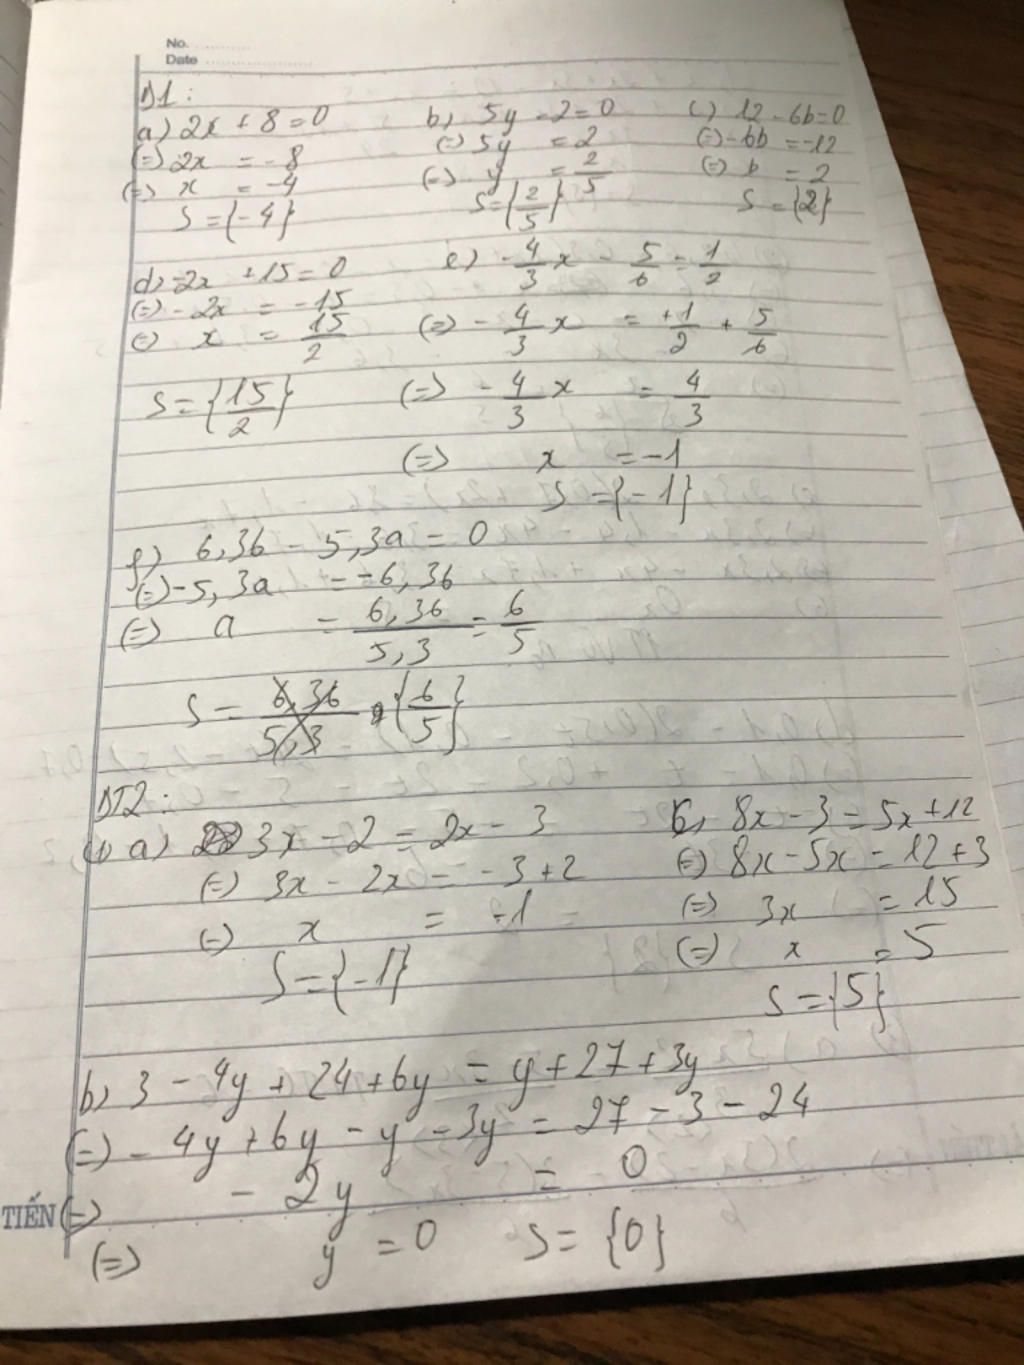 No.
Date
D1:
a) 2x + 8 = 0
(=) 2x = -8
(=) x = -4
S = {-4}
b) 5y - 2 = 0
(=) 5y = 2
(=) y = 2/5
S = {2/5}
c) 12 - 6b = 0
(=) -6b = -12
(=) b = 2
S = {2}
d) -2x + 15 = 0
(=) -2x = -15
(=) x = 15/2
S = {15/2}
e) -4/3 x - 5/6 = 1/2
(=) -4/3 x = +1/2 + 5/6
(=) -4/3 x = 4/3
(=) x = -1
S = {-1}
f) 6,36 - 5,3a = 0
(=) -5,3a = -6,36
(=) a = 6,36/5,3 = 6/5
S = {6/5}
DT2:
a) 3x - 2 = 2x - 3
(=) 3x - 2x = -3 + 2
(=) x = -1
S = {-1}
8x - 3 = 5x + 12
(=) 8x - 5x = 12 + 3
(=) 3x = 15
(=) x = 5
S = {5}
b) 3 - 4y + 24 + 6y = y + 27 + 3y
(=) -4y + 6y - y - 3y = 27 - 3 - 24
(=) -2y = 0
(=) y = 0 S = {0}
TIẾN